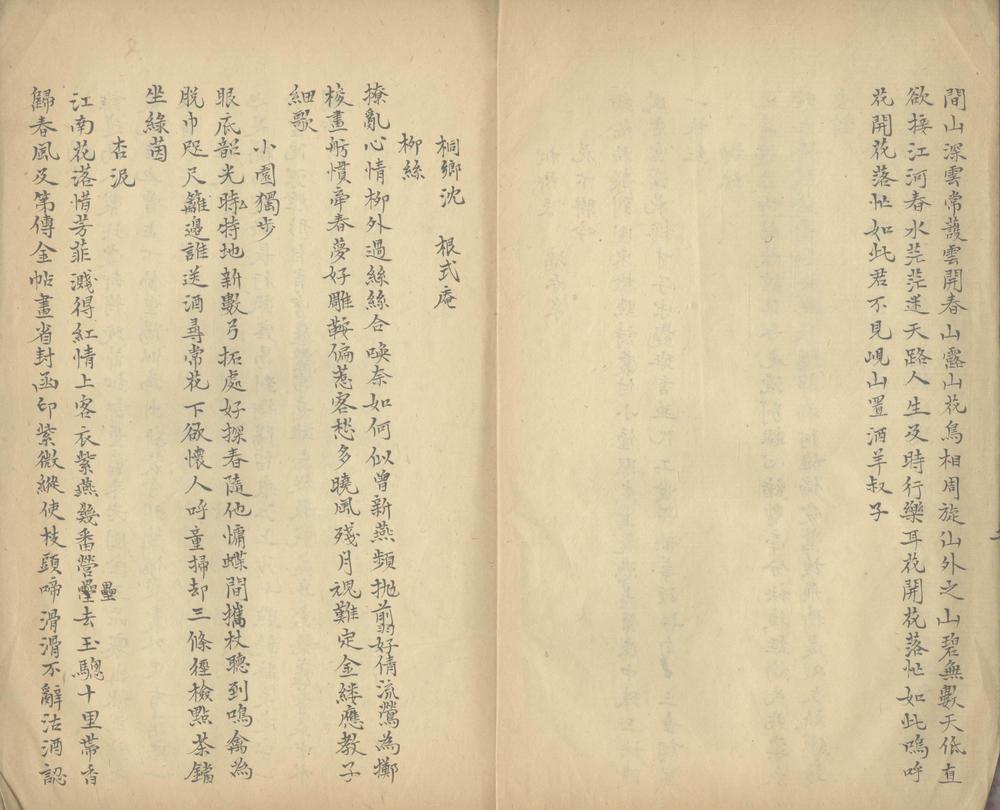 間山深雲常護雲開春山露山花鳥相周旋山外之山碧無數天低直
欲接江河春水茫茫迷天路人生及時行樂耳花開花落忙如此嗚呼
花開花落忙如此君不見峴山置酒羊叔子
桐鄉沈 根式庵
柳絲
撩亂心情柳外過絲絲合喚奈如何似曾新燕頻拋剪好倩流鶯為擲
梭畫舫慣牽春夢好雕鞍偏惹客愁多曉風殘月魂難定金縷應教子
細歌
小園獨步
眼底韶光時特地新數弓拓處好探春隨他慵蝶間攜杖聽到鳴禽為
脫巾咫尺籬邊誰送酒尋常花下欲懷人呼童掃却三條徑檢點茶鐺
坐綠茵
杏泥
江南花落惜芳菲濺得紅情上客衣紫燕幾番營壘去玉驄十里帶香
壘
歸春風及第傳金帖畫省封函印紫微縱使枝頭啼滑滑不辭沽酒認